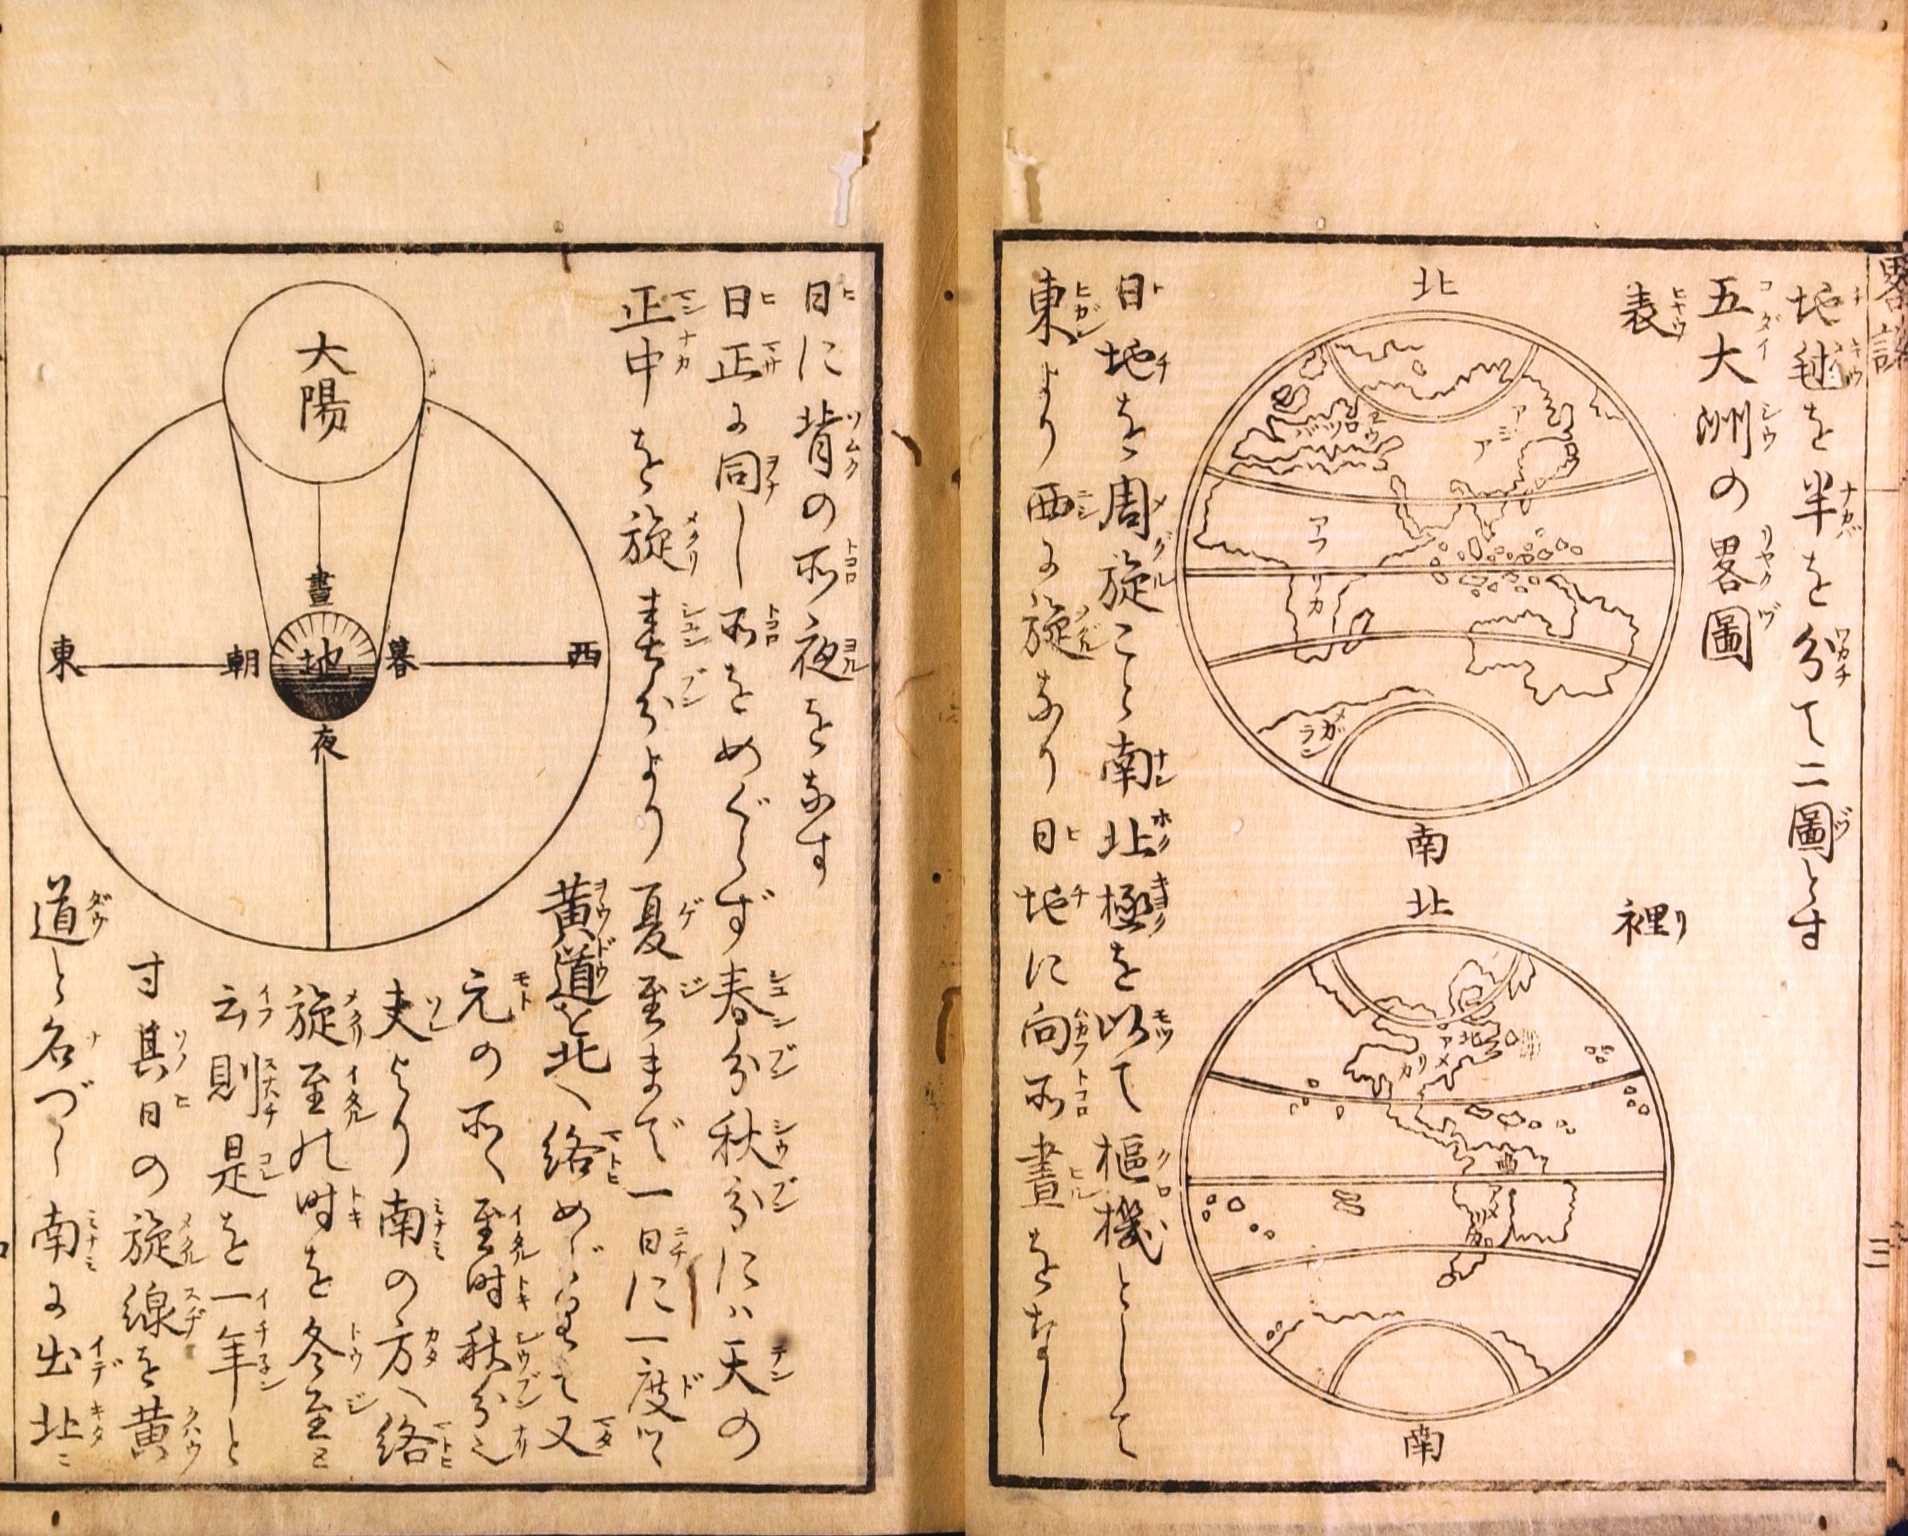 畧説
地毬を半を分て二圖とす
五大洲の畧圖
表
北
ヱウロツパ
アジア
アフリカ
メガラニ
南
裡
北
北アメリカ
南
日地を周旋こと南北極を以て樞機として
東より西に旋なり日地に向所晝をなし
三
日に背の所夜をなす
日正に同し所をめぐらず春分秋分にハ天の
正中を旋春分より夏至まで一日に一度ツヽ
黄道を北へ絡めぐり至て又
元の所へ至時秋分也
夫より南の方へ絡
旋至の時を冬至ト
云則是を一年と
す其日の旋線を黄
道と名づく南に出北ニ
大陽
晝
東
朝
地
暮
西
夜